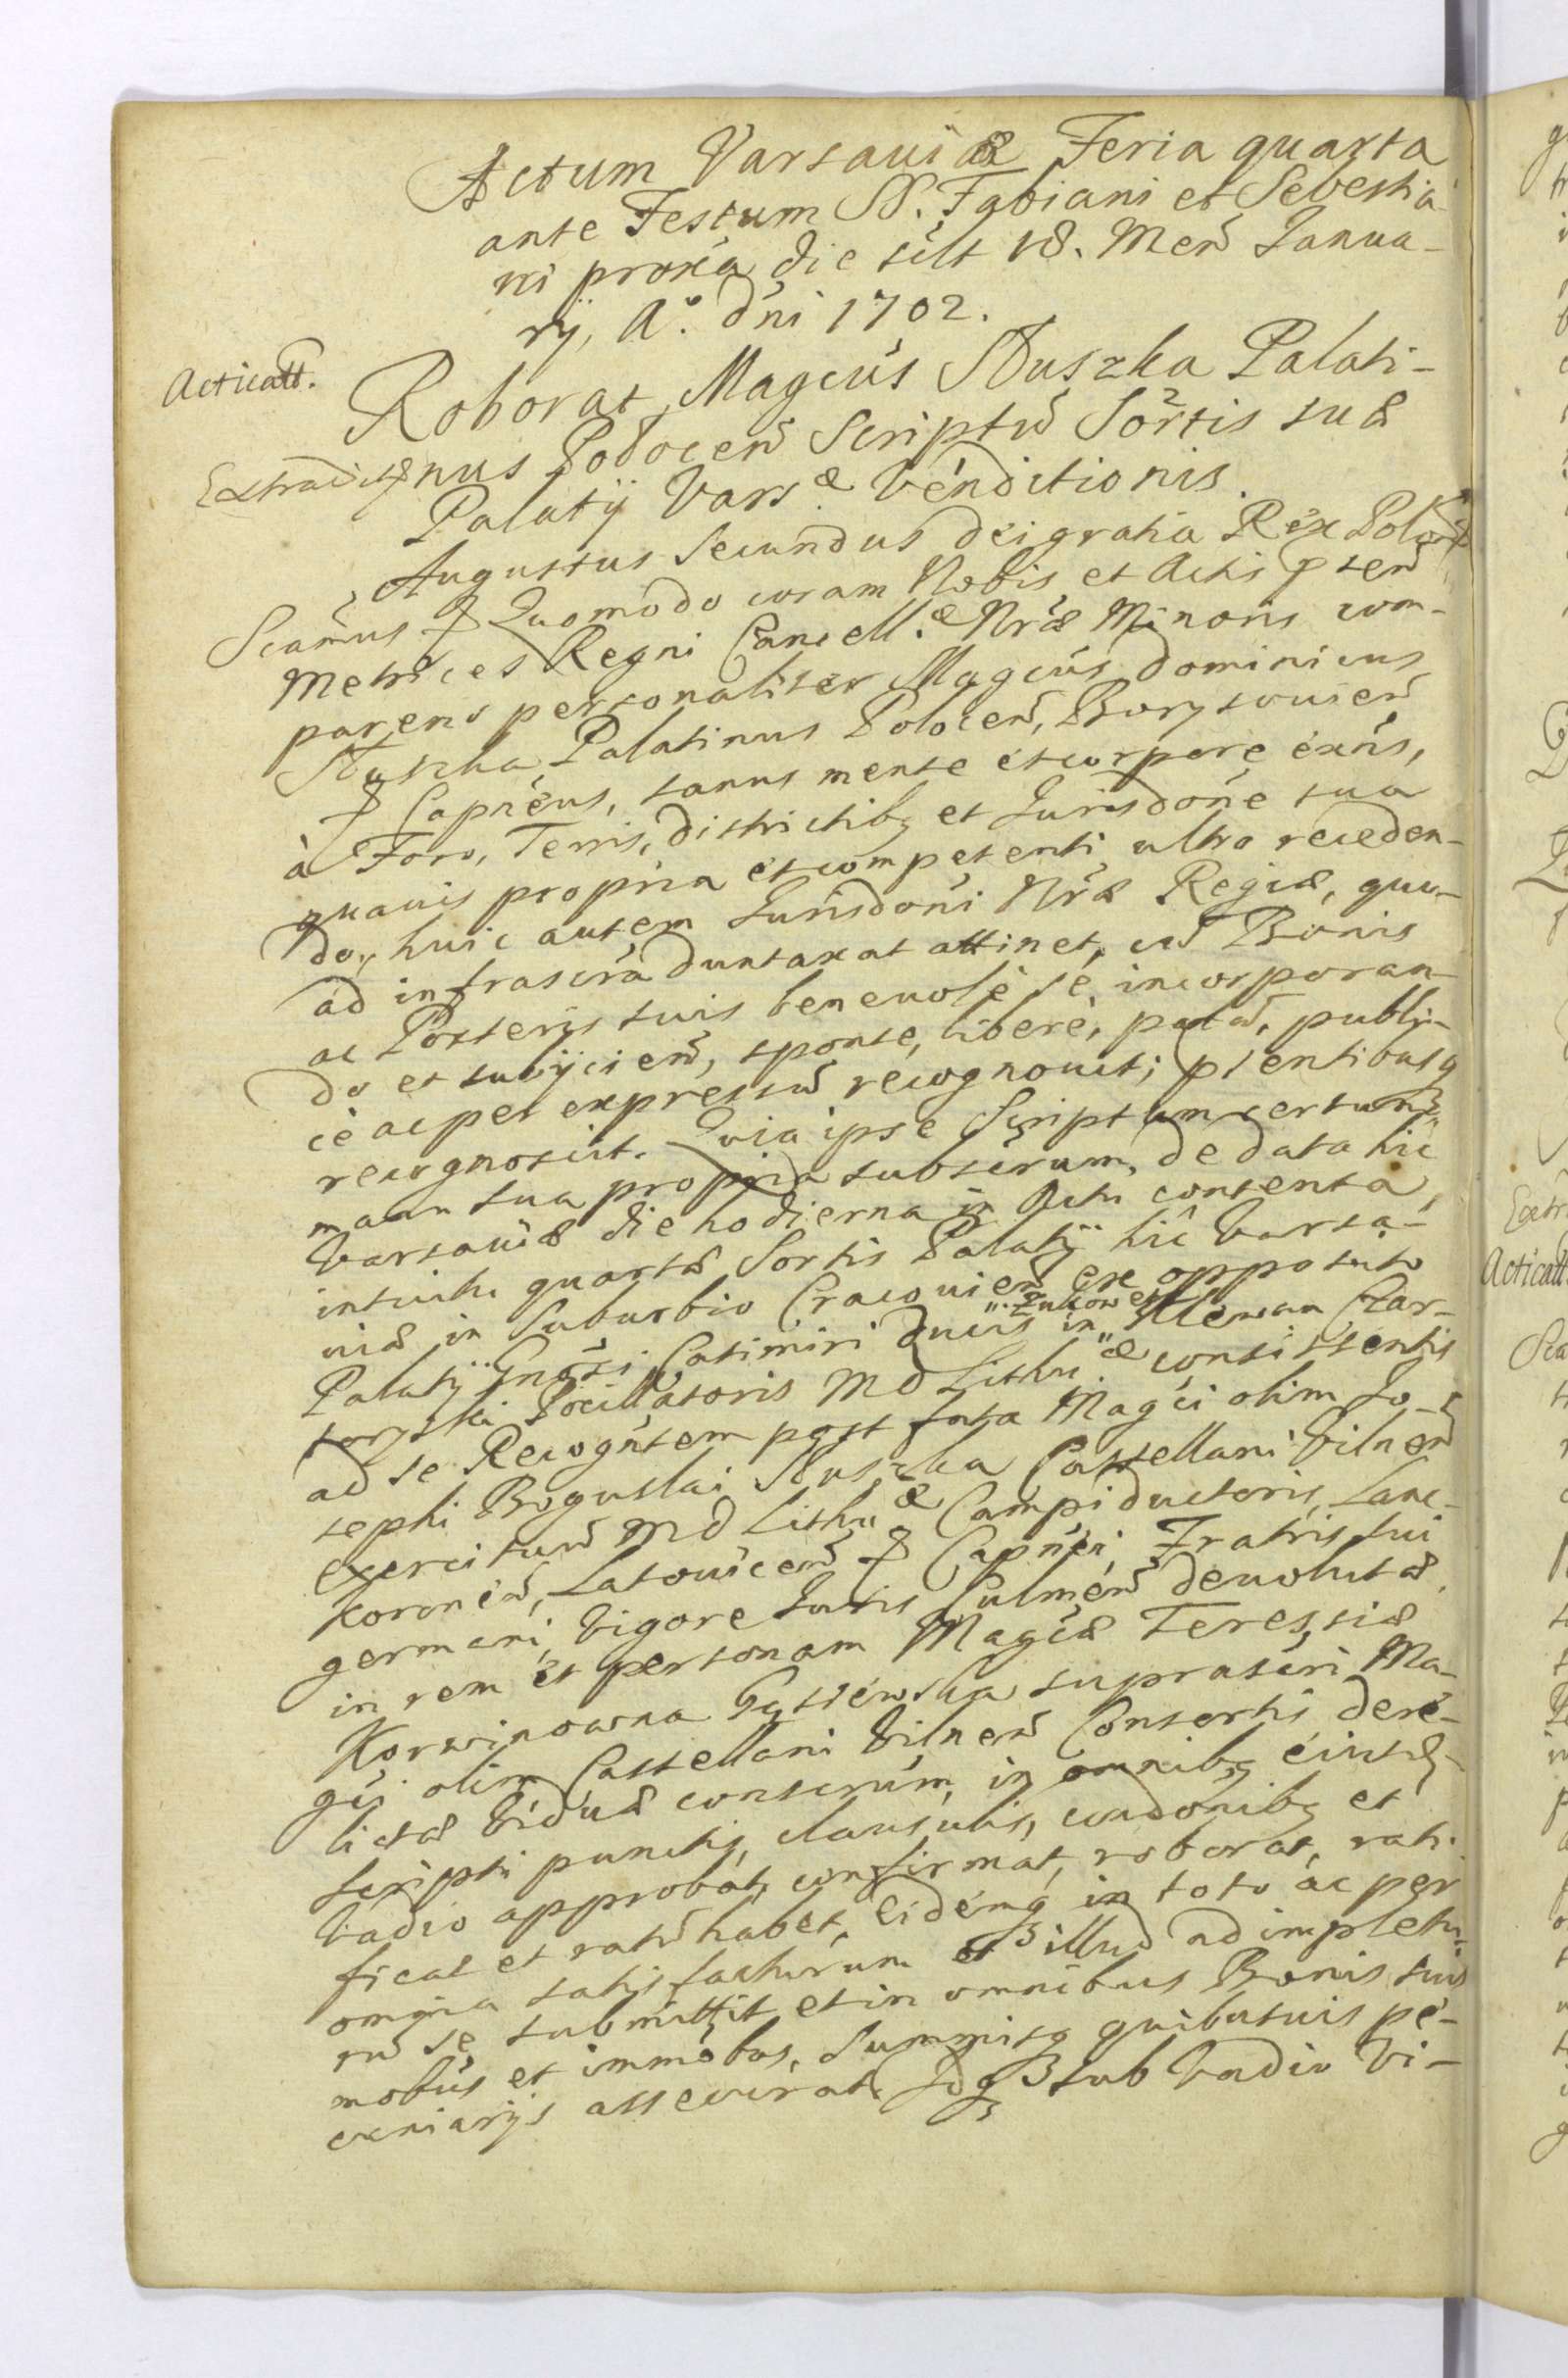 Actum Varsaviæ Feria quarta
ante Festum SS. Fabiani et Sebestia-
ni proxa die scilt 18. Men Janua-
rij, Aº. Dni 1702.
Acticatt.
Roborat Magcus Słuszka Palati-
Extradit
nus Połocen Scriptu Sortis suæ
Palatij Varsæ Venditionis.
Augustus Secundus Dei gratia Rex Pol
Scamus Quomodo coram Nobis et Actis pnten
Metrices Regni Cancell.æ Nræ Minoris com-
parens personaliter Magcus Dominicus
Słuszka Palatinus Polocen, Borysouien
Capneus, sanus mente et corpore exns,
à Foro, Terris, districtibq et Jurisdone sua
quauis propria et competenti ultro receden-
do, huic autem Jurisdoni Nræ Regiæ, quo-
ad infrascra duntaxat attinet, cu Bonis
ac Posteris suis beneuolè se incorporan-
do et subijcien, sponte, liberè, pala, publi-
cè ac per expressu recognouit; pntentibusq
recognoscit. Quia ipse Scriptum certum
manu sua propria subscrum, de data hic
Varsauiæ die hodierna in Actu contenta,
intuitu quartæ Sortis Palatij hic Varsa-
uiæ in Suburbio Cracouien ex opposito
Palatij Gnosi Casimiri Ducis in Klewan Czar-
" Zukow et "
toryski Pocillatoris M D Lithuæ consistentis
ad se Recogntem post fata Magci olim Jo-
sephi Boguslai Słuszka Castellani Vilnen
exercituu M D Lithuæ Campiductoris, Lanc-
koronen, Latouicen Capnei, Fratris sui
germani, Vigore Juris Culmen deuolutæ,
in rem et personam Magcæ Teressiæ
Korwinowna Gąsiewska suprascri Ma-
gci olim Castellani Vilnen Consortis dere-
lictæ Viduæ conscrum, in omnibq eiusd-
scripti punctis, clausulis, condonibq et
Vadio approbat, confirmat, roborat, rati-
ficat et ratu habet, eidemq in toto ac per
omnia satisfacturum et illud adimpletu-
ru se submittit, et in omnibus Bonis suis
mobus et immobus, Summisq quibusuis pe-
cuniarijs assecurat. Idq sub Vadio Vi-